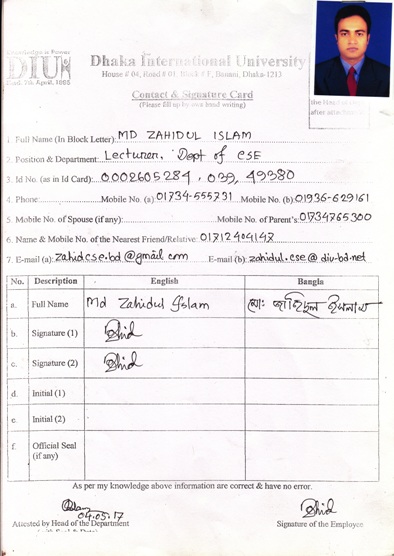 DIU
Dhaka International University
House # 04, Road # 01, Block # F, Banani, Dhaka-1213
Contact & Signature Card
(Please fill up by own hand writing)
1. Full Name (In Block Letter): MD ZAHIDUL ISLAM
2. Position & Department: Lecturer. Dept of CSE
3. Id No. (as in Id Card): 0002605284, 039, 49380
4. Phone: Mobile No. (a) 01734-555731 Mobile No. (b) 01936-629161
5. Mobile No. of Spouse (if any): Mobile No. of Parent's 01734765300
6. Name & Mobile No. of the Nearest Friend/Relative: 01712404147
7. E-mail (a): zahidcse.bd@gmail.com E-mail (b): zahidul.cse@diu-bd.net
No. Description English Bangla
a. Full Name Md Zahidul Islam মোঃ জাহিদুল ইসলাম
b. Signature (1) Zahid
c. Signature (2) Zahid
d. Initial (1)
e. Initial (2)
f. Official Seal
(if any)
As per my knowledge above information are correct & have no error.
04.05.17 Zahid
Attested by Head of the Department Signature of the Employee